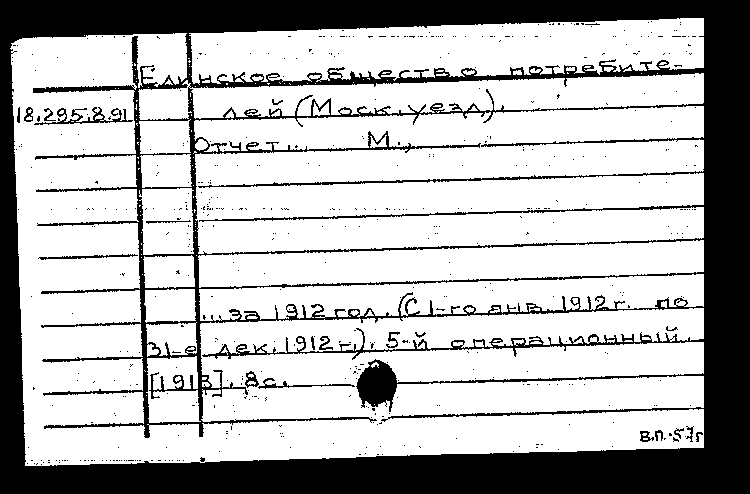 Елинское общество потребите-
18.295.8.91 лей (Моск. уезд.).
Отчет... М.,
...за 1912 год. (С 1-го янв. 1912 г. по
31-е дек. 1912 г.). 5-й операционный.
[1913]. 8 с.
В.П.-57г